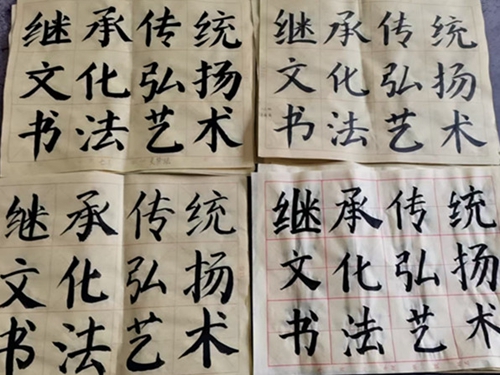 继承传统
文化弘扬
书法艺术
继承传统
文化弘扬
书法艺术
继承传统
文化弘扬
书法艺术
继承传统
文化弘扬
书法艺术